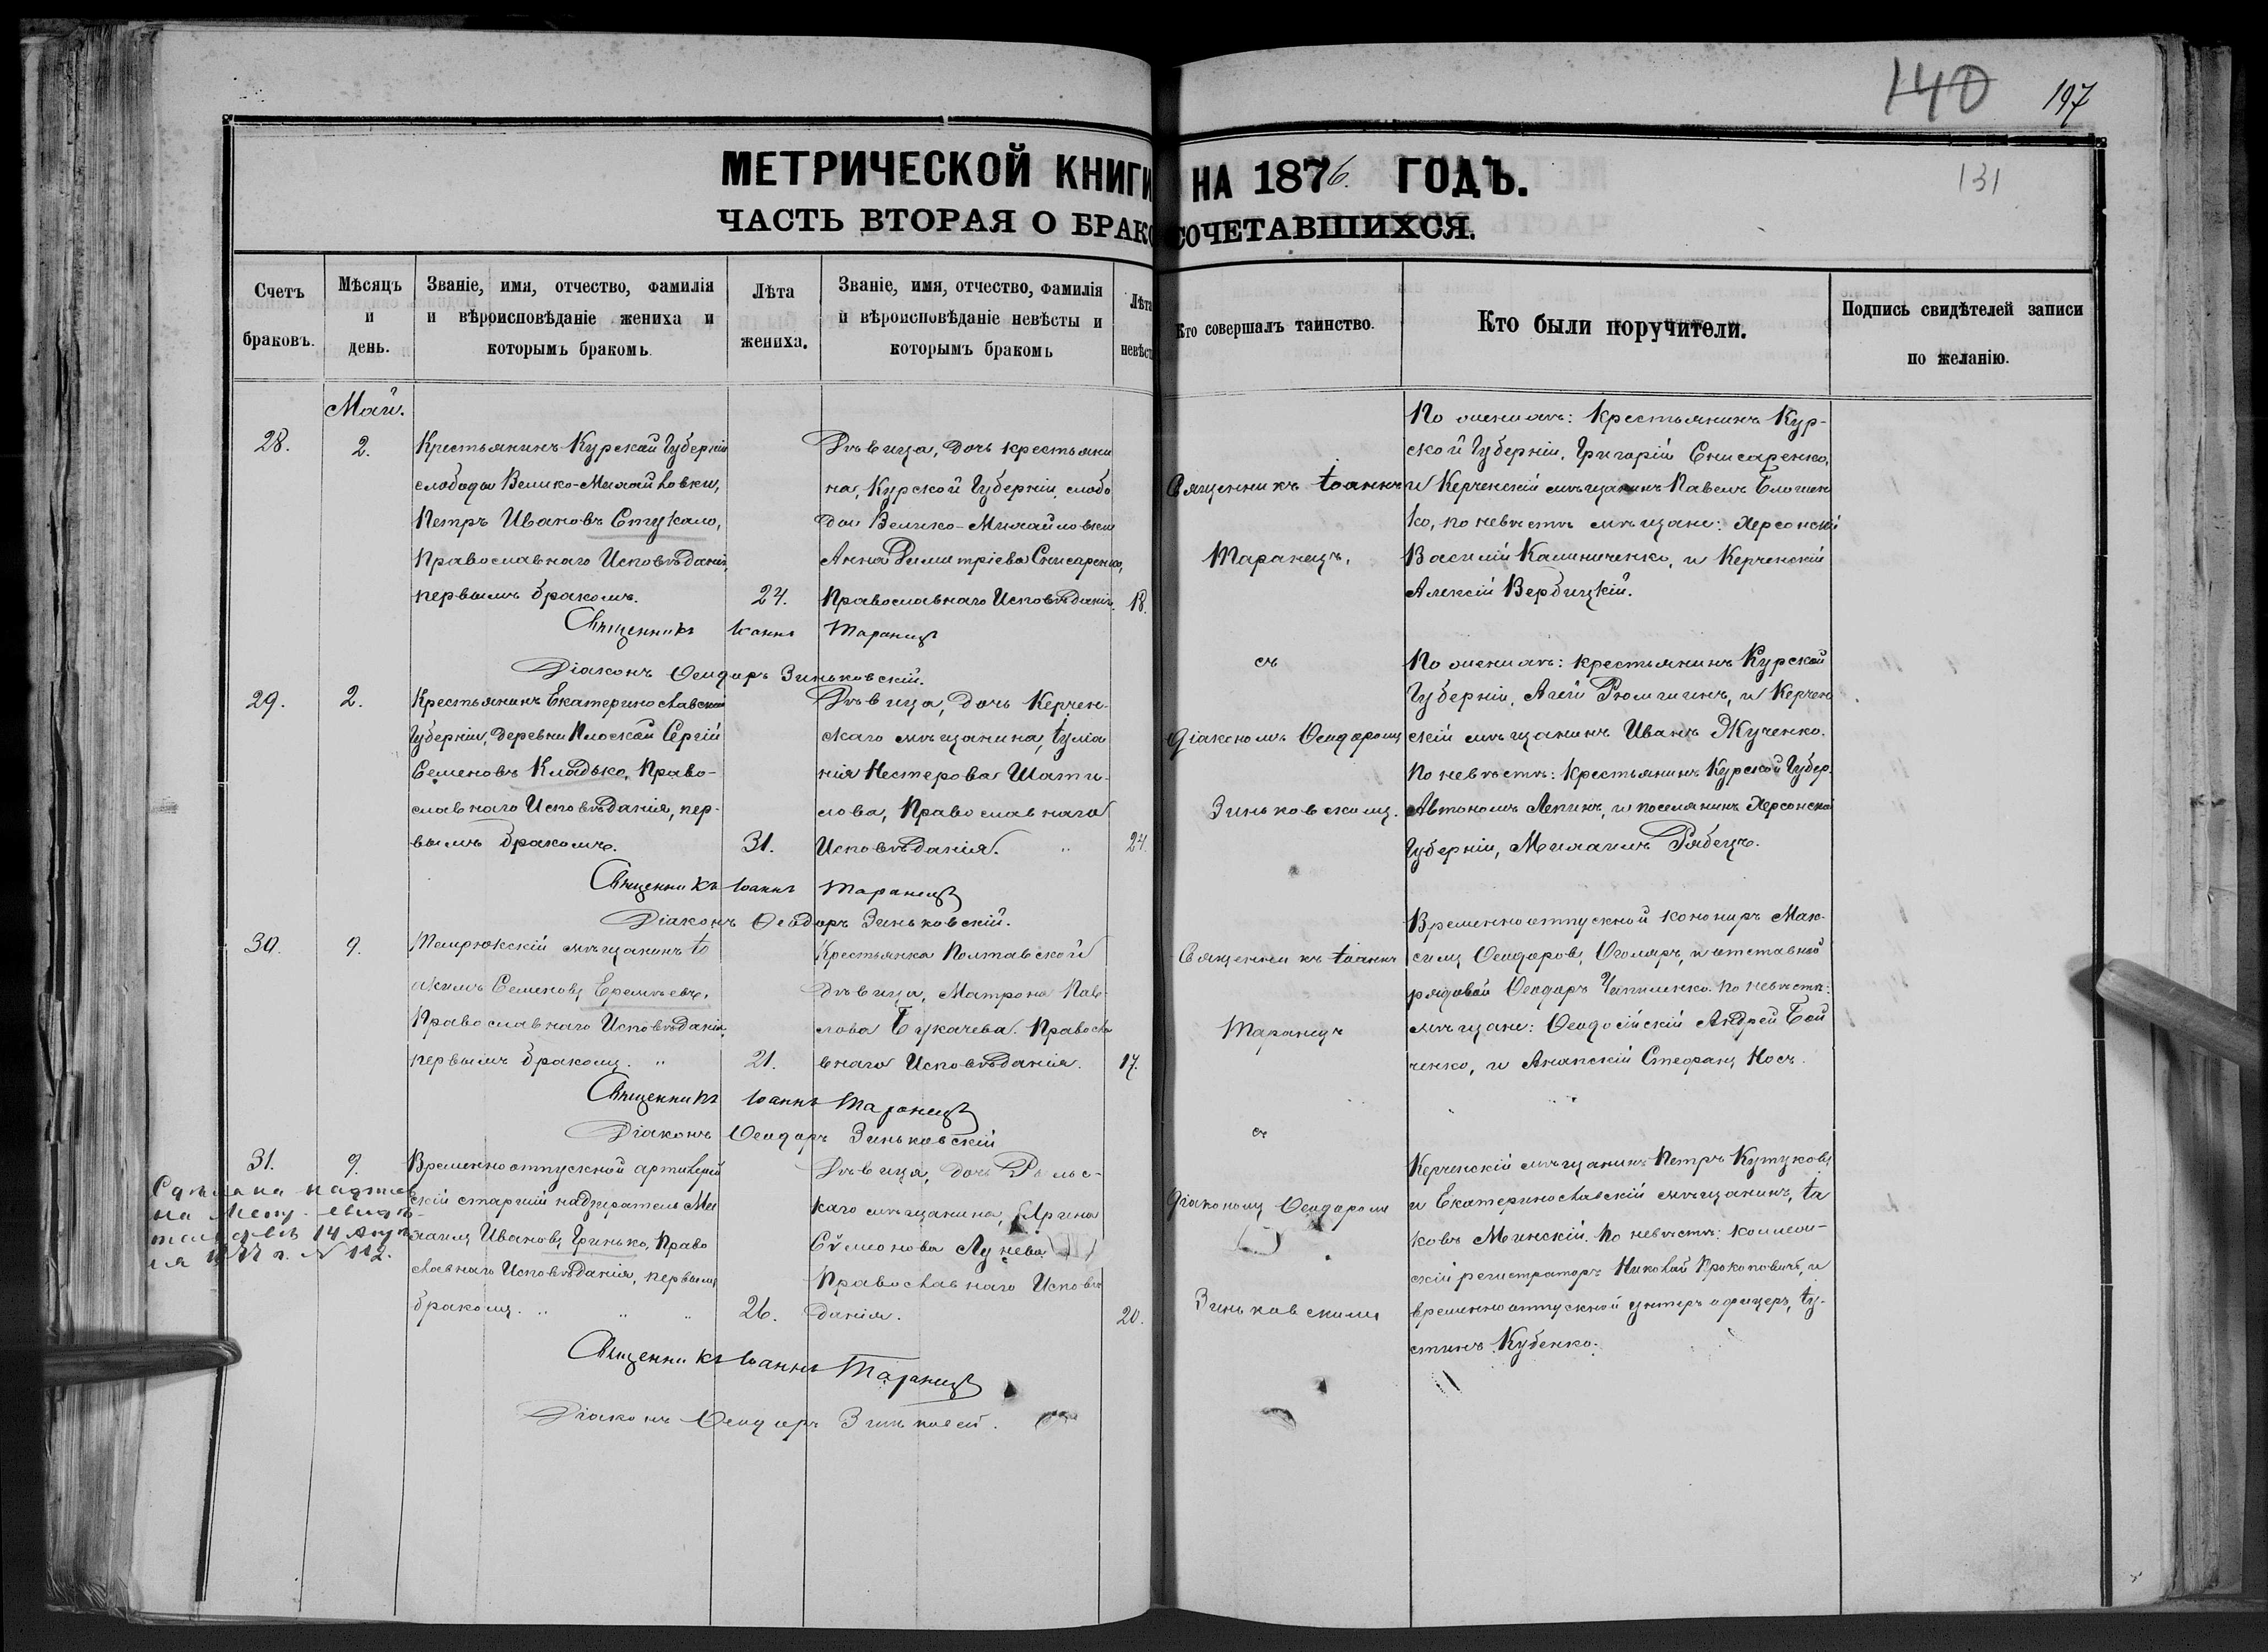 140 197
131
МЕТРИЧЕСКОЙ КНИГИ НА 1876. ГОДЪ.
ЧАСТЬ ВТОРАЯ О БРАКОСОЧЕТАВШИХСЯ.
Счетъ браковъ.
Мѣсяцъ и день.
Званіе, имя, отчество, фамилія
и вѣроисповѣданіе жениха и
которымъ бракомъ.
Лѣта жениха.
Званіе, имя, отчество, фамилія
и вѣроисповѣданіе невѣсты и
которымъ бракомъ
Лѣта невѣст
Кто совершалъ таинство.
Кто были поручители.
Подпись свидѣтелей записи
по желанію.
Май.
28.
2.
Крестьянинъ Курской Губерніи
слободы Велико-Михайловки,
Петръ Ивановъ Стукало,
Православнаго Исповѣданія,
первымъ бракомъ.
24.
Дѣвица, дочь крестьяни
на, Курской Губерніи, слобо
ды Велико-Михайловки
Анна Димитріева Снисаренко,
Православнаго Исповѣданія.
18.
Священникъ Іоаннъ
Таранецъ,
По женихѣ: Крестьянинъ Кур-
ской Губерніи, Григорій Снисаренко,
и Керченскій мѣщанинъ Павелъ
ко, по невѣстѣ мѣщане: Херсонскій
Василій Калиниченко, и Керченскій
Алексій Вербицкій.
Священникъ Іоаннъ Таранецъ
Діаконъ Ѳеодоръ Зиньковскій.
29.
2.
Крестьянинъ Екатеринославской
Губерніи, деревни Плоской Сергій
Семеновъ Кладько, Право-
славнаго Исповѣданія, пер-
вымъ бракомъ.
31.
Дѣвица, дочь Керчен-
скаго мѣщанина, Іуліа
нія Нестерова Шати-
лова, Православнаго
Исповѣданія. "
24.
съ
Діакономъ Ѳеодоромъ
Зиньковскимъ.
По женихѣ: крестьянинъ Курской
Губерніи, и Керчен
скій мѣщанинъ Иванъ Жученко.
По невѣстѣ: Крестьянинъ Курской Губер.
Автономъ Лепинъ, и поселянинъ Херсонской
Губерніи, Михаилъ Рябецъ.
Священникъ Іоаннъ Таранецъ
Діаконъ Ѳеодоръ Зиньковскій.
30.
9.
Темрюкскій мѣщанинъ Іо
акимъ Семеновъ Еремѣевъ,
Православнаго Исповѣданія,
первымъ бракомъ. "
21.
Крестьянка Полтавской
дѣвица, Матрона Пав-
лова Букачева. Правосла
внаго Исповѣданія.
17.
Священникъ Іоаннъ
Таранецъ
Временноотпускной конониръ Мак-
симъ Ѳеодоровъ и отставной
рядовой Ѳеодоръ Чипиленко. по невѣстѣ:
мѣщане: Ѳеодосійскій Андрей Бой
ченко, и Анапскій Стефанъ Носъ.
Священникъ Іоаннъ Таранецъ
Діаконъ Ѳеодоръ Зиньковскій
31.
9.
Временноотпускной артилерій
скій старшій надзиратель Ми
хаилъ Ивановъ Гринько, Право
славнаго Исповѣданія, первымъ
бракомъ. " " "
26.
Дѣвица, дочь Рыльс-
каго мѣщанина, Ирина
Сѵмеонова Лунева
Православнаго Исповѣ
данія.
20.
съ
Діакономъ Ѳеодоромъ
Зиньковскимъ
Керченскій мѣщанинъ Петръ Кутуковъ
и Екатеринославскій мѣщанинъ, Іа
ковъ Минскій. По невѣстѣ: коллеж-
скій регистраторъ Николай Прокоповичъ, и
временноотпускной унтеръ офицеръ, Іу-
стинъ Кубенко.
1877 г. N 112.
Священникъ Іоаннъ Таранецъ
Діаконъ Ѳеодоръ